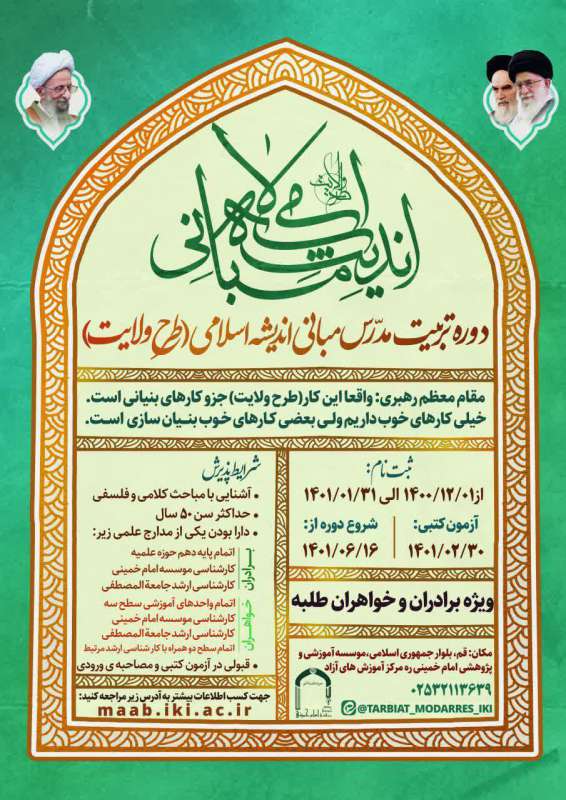 مبانی اندیشه اسلامی
طرح ولایت
دوره تربیت مدرّس مبانی اندیشه اسلامی (طرح ولایت)
مقام معظم رهبری: واقعا این کار(طرح ولایت) جزو کارهای بنیانی است.
خیلی کارهای خوب داریم ولی بعضی کارهای خوب بنیان سازی است.
ثبت نام:
از ۱۴۰۰/۱۲/۰۱ الی ۱۴۰۱/۰۱/۳۱
آزمون کتبی:
۱۴۰۱/۰۲/۳۰
شروع دوره از:
۱۴۰۱/۰۶/۱۶
ویژه برادران و خواهران طلبه
مکان: قم، بلوار جمهوری اسلامی، موسسه آموزشی و
پژوهشی امام خمینی ره مرکز آموزش های آزاد
۰۲۵۳۲۱۱۳۶۳۹
@TARBIAT_MODARRES_IKI
شرایط پذیرش
• آشنایی با مباحث کلامی و فلسفی
• حداکثر سن ۵۰ سال
• دارا بودن یکی از مدارج علمی زیر:
برادران
اتمام پایه دهم حوزه علمیه
کارشناسی موسسه امام خمینی
کارشناسی ارشد جامعة المصطفی
خواهران
اتمام واحدهای آموزشی سطح سه
کارشناسی موسسه امام خمینی
کارشناسی ارشد جامعة المصطفی
اتمام سطح دو همراه با کارشناسی ارشد مرتبط
• قبولی در آزمون کتبی و مصاحبه ی ورودی
جهت کسب اطلاعات بیشتر به آدرس زیر مراجعه کنید:
maab.iki.ac.ir